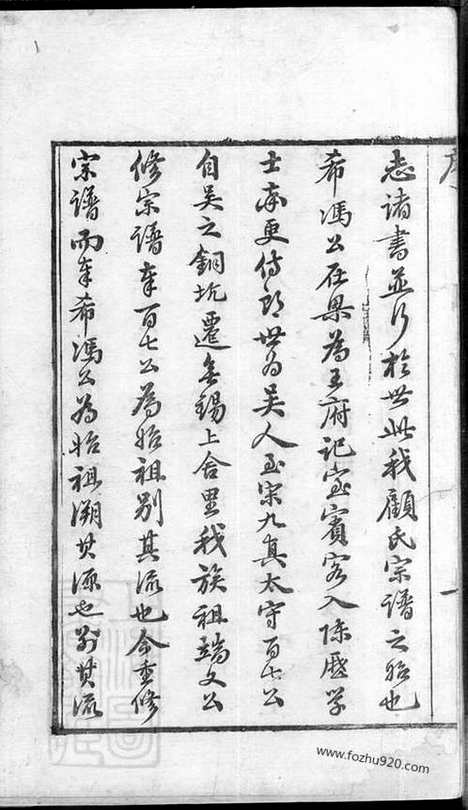 志諸書並行於世此我顧氏宗譜之始也
希馮公在梁為王府記室賓客入陳歷學
士吏侍郎世為吳人至宋九真太守百七公
自吳之銅坑遷無錫上舍里我族祖端文公
修宗譜奉百七公為始祖別其流也今重修
宗譜而奉希馮公為始祖溯其源也別其流
一
www.fozhu920.com